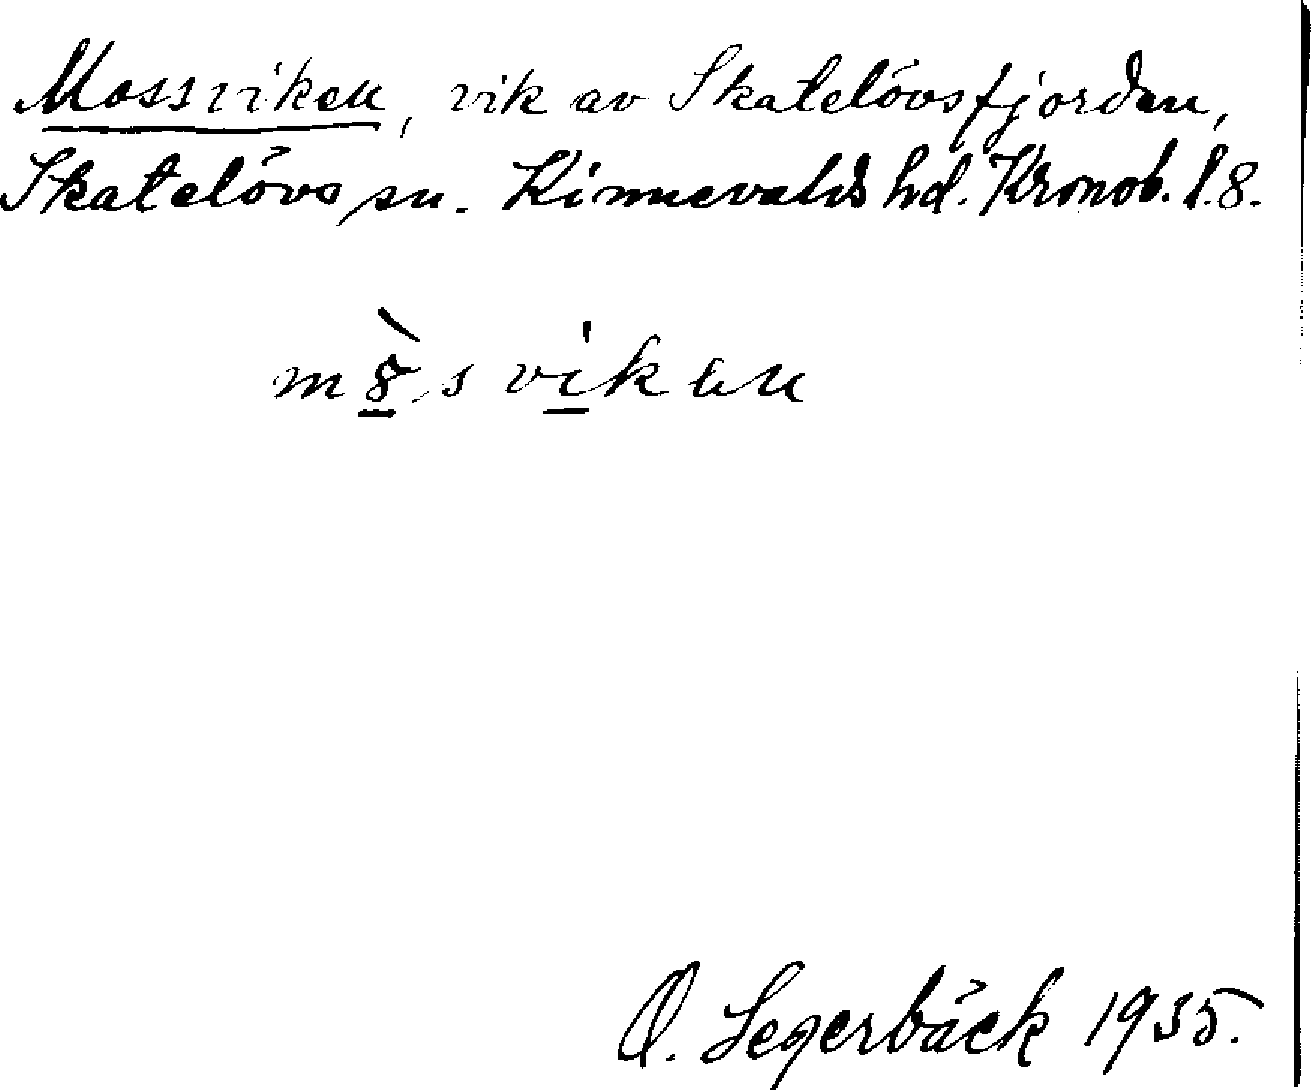 Mossviken, vik av Skatelövsfjorden,
Skatelövs sn. Kinnevalds hd. Kronob. l. 8.
mə̀8̲s vi̲ken
O. Segerbäck 1935.